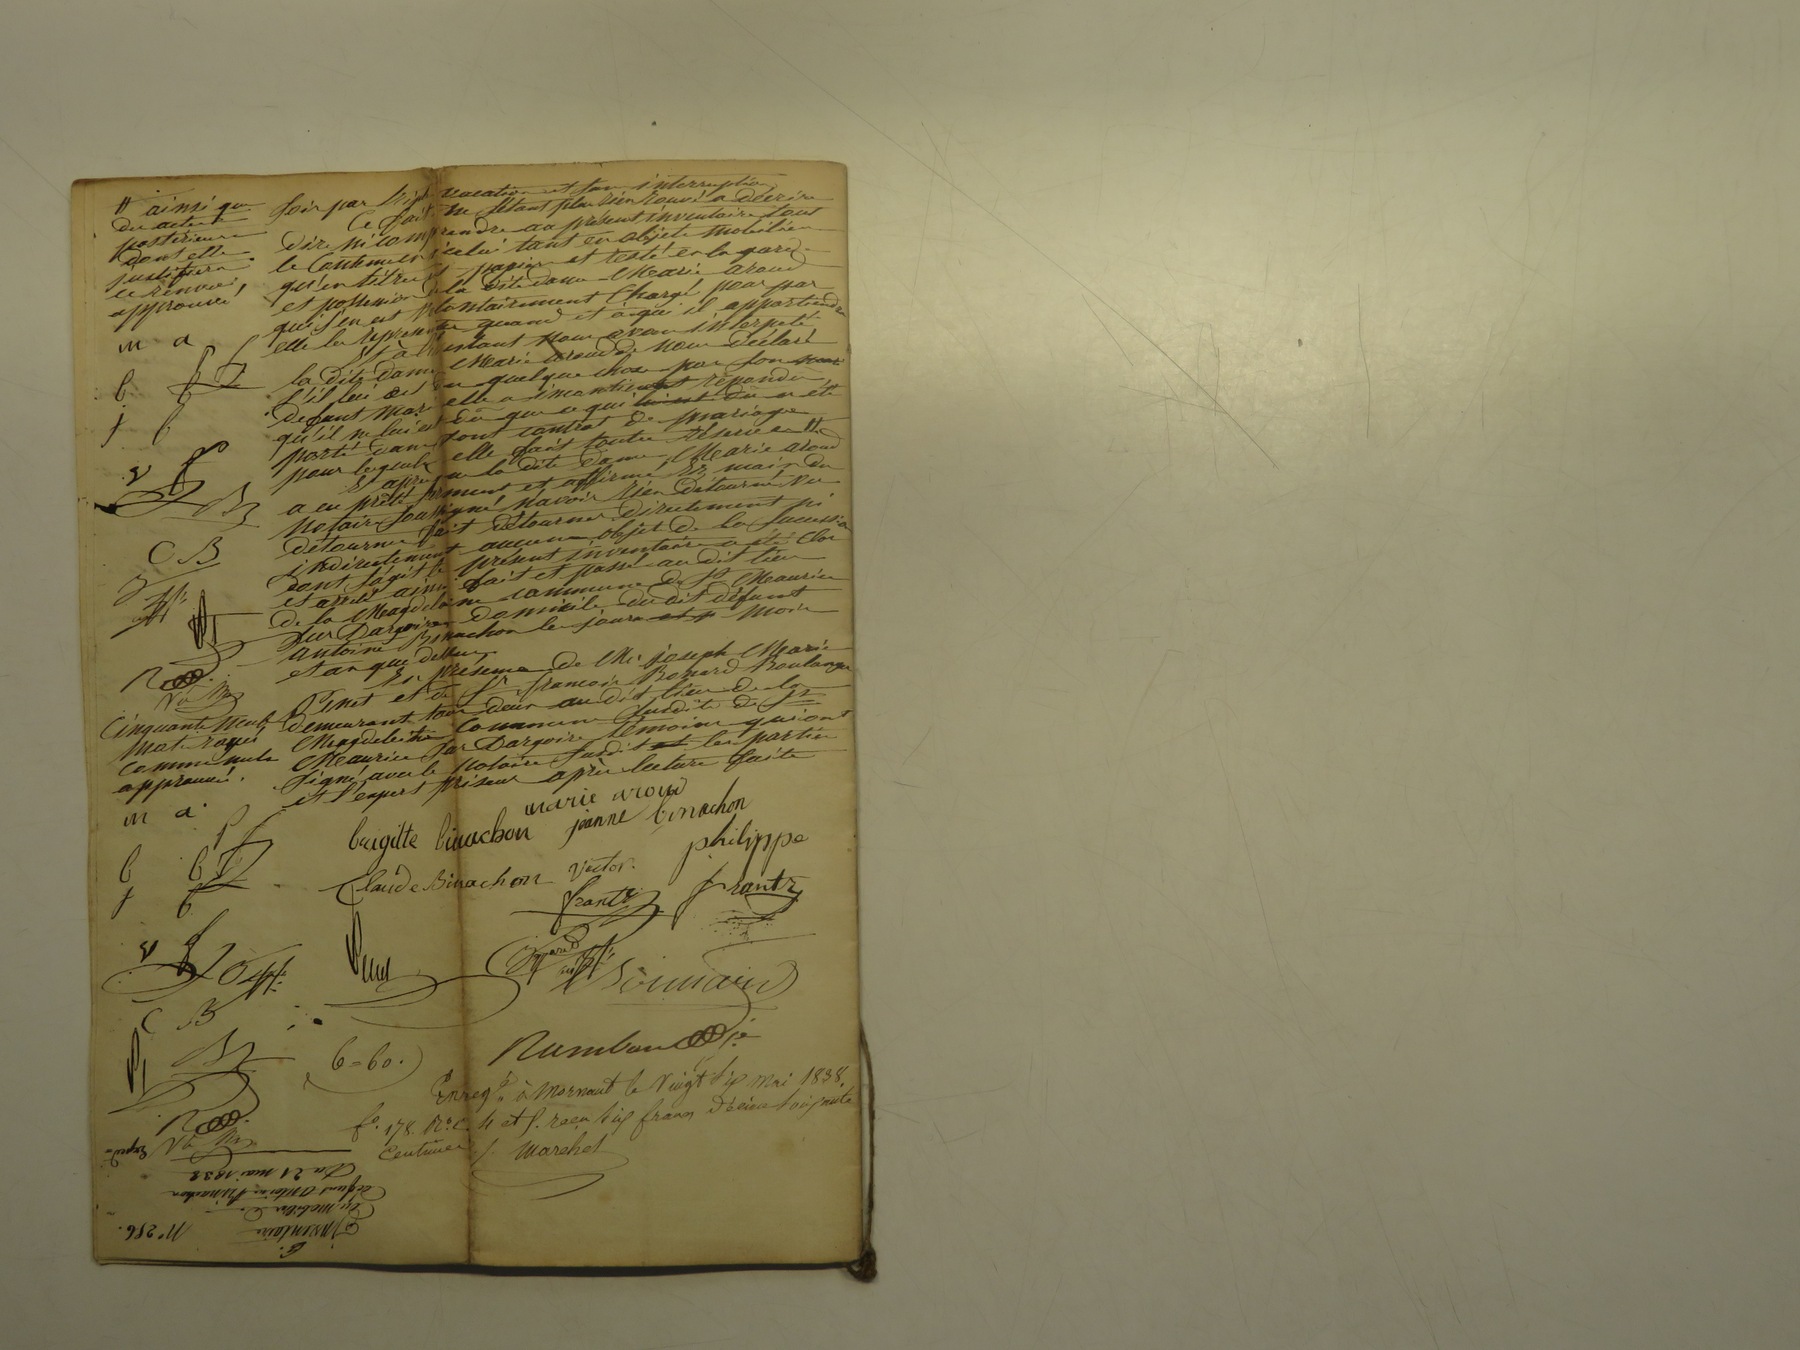 soir par triple vacation et sans interruption
Ce fait ne s'étant plus rien trouvé à décrire
dire ni comprendre au présent inventaire tout
le Contenu en icelui tant en objets mobiliers
qu'en titres et papiers est resté en la garde
et possession de la dite dame Marie aroud
qui s'en est volontairement Chargé pour par
elle les représenter quand et à qui il appartiendra
Et à l'instant nous avons interpellé
la dite dame Marie aroud de nous déclarer
s'il lui est dû quelque chose par son
defunt mari elle a incontinent répondu
qu'il ne lui est dû que ce qui
porté dans son contrat de mariage
pour lequel elle fait toutes réserves #
Et après que la dite dame Marie aroud
a eu prêté serment et affirmé Es mains du
notaire soussigné n'avoir rien détourné vu
détourner fait détourner directement ni
indirectement aucuns objets de la succession
dont s'agit le présent inventaire a été Clos
et arrêté ainsi fait et passé au dit lieu
de la Magdelaine commune de St Maurice
sur Dargoire domicile du dit défunt
antoine Binachon les jours mois
et an que dessus
En présence de Mr joseph Marie
Pinet et de Sr françois Bonard Boulanger
demeurant tous deux au dit lieu de la
Magdeleine Commune susdite de St
Maurice sur Dargoire témoins qui ont
signé avec le notaire susdit les parties
et l'expert priseur après lecture faite
# ainsi que
des actes
postérieurs
dont elle
justifiera
ce renvoi
approuvé
m a
b
j b
C B
Cinquante neuf
mots rayés
comme nuls
approuvés.
m a
b
j b
C B
marie aroud
brigitte binachon jeanne binachon
philippe
Claude Binachon victor
frantz frantz
Pinet
Bonnard
6=60.
Enregé à Mornant le vingt six mai 1838.
fo. 178. Ro. C. 4 et s. reçu six francs
centimes Marchet
Du 21 mai 1838
défunt Antoine Binachon
Inventaire
No 286.